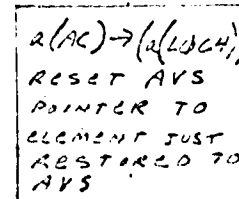 a(AC)→(a(LOC4))
RESET AVS
POINTER TO
ELEMENT JUST
RESTORED TO
AVS